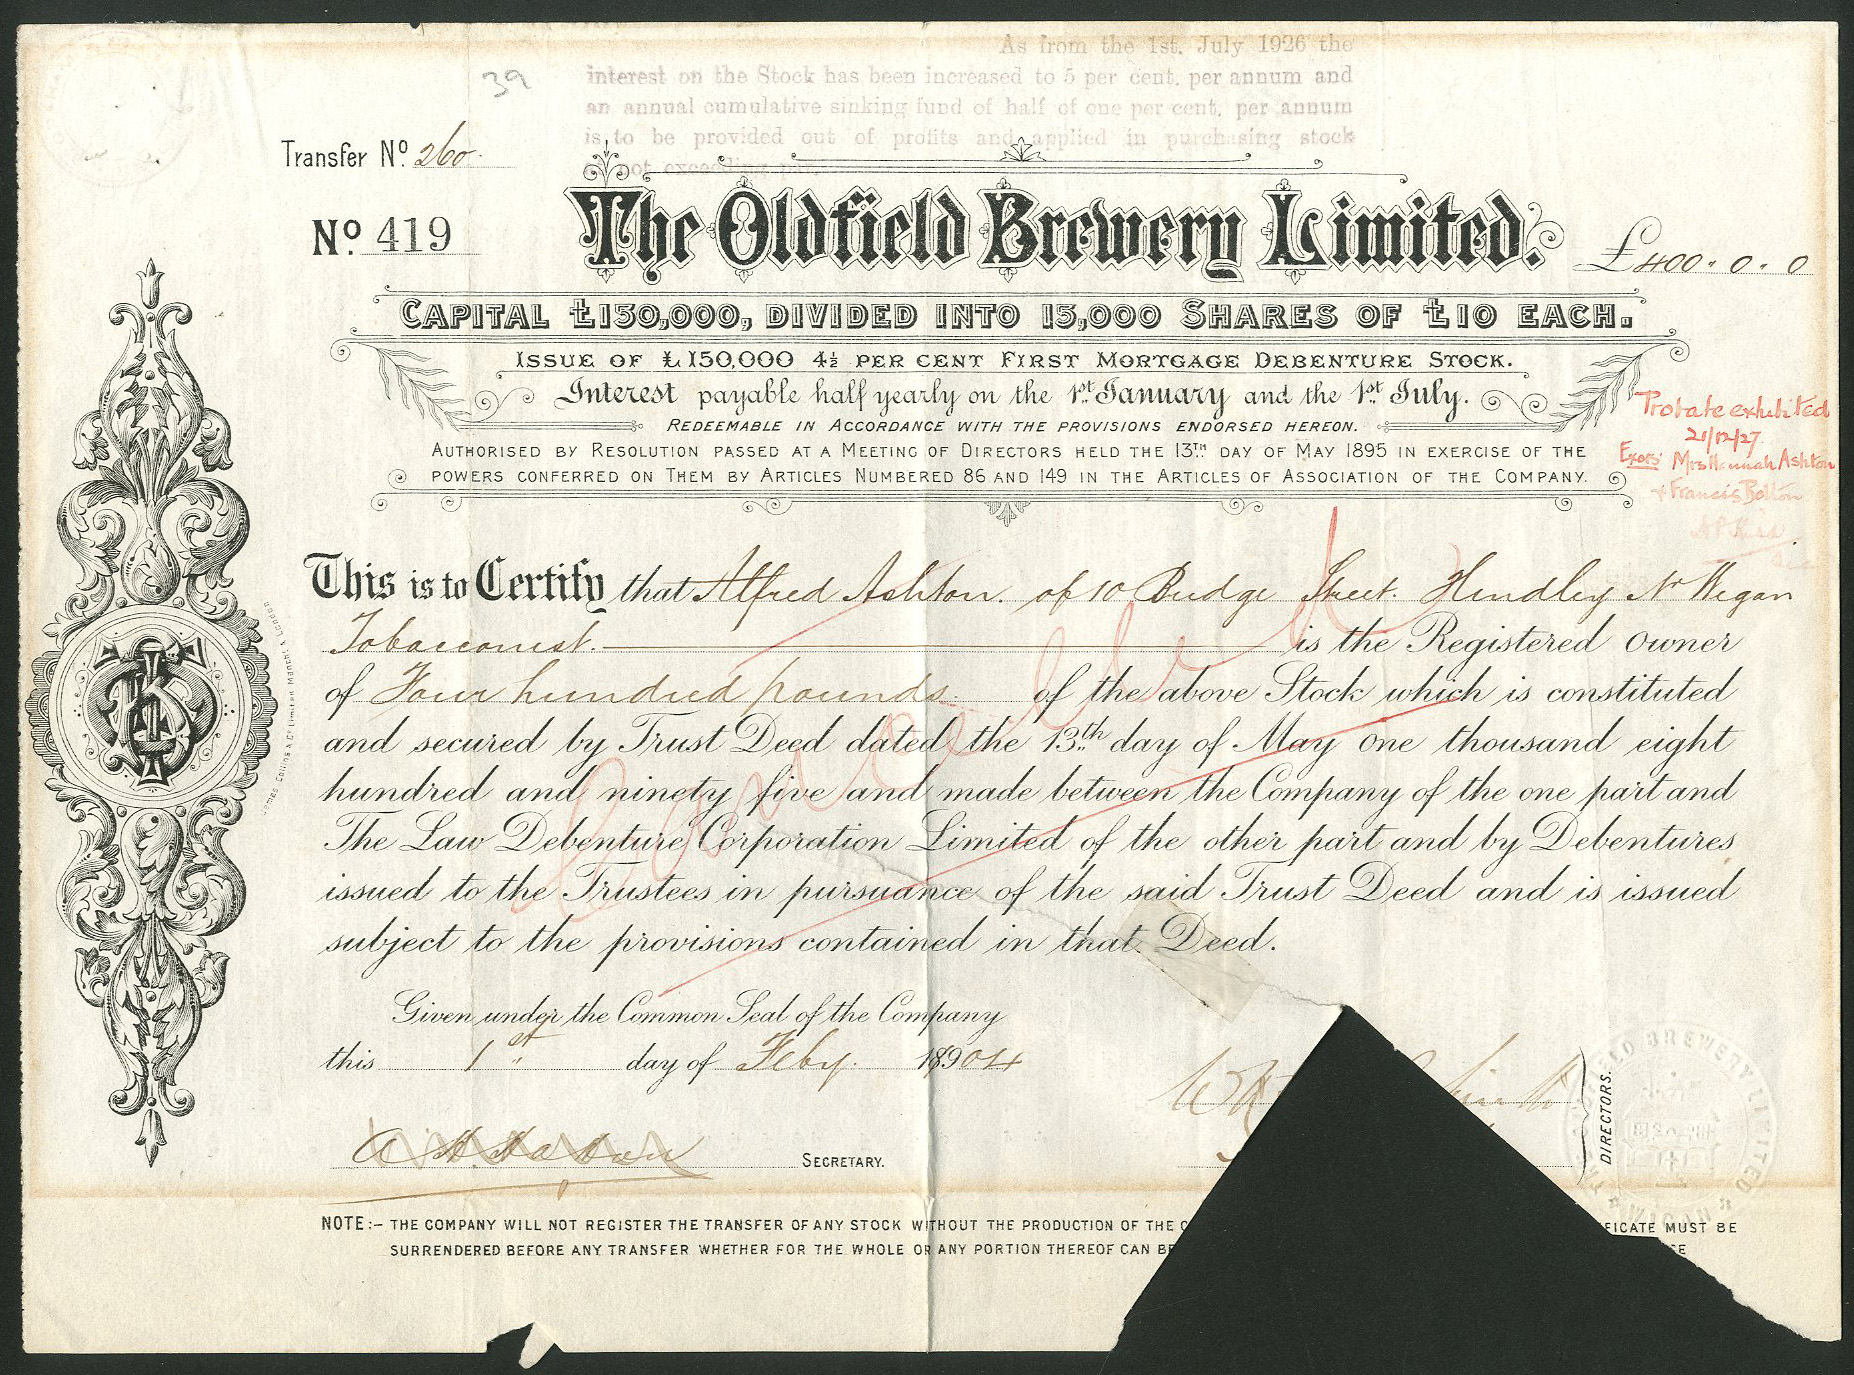 As from the 1st. July 1926 the
interest on the Stock has been increased to 5 per cent. per annum and
an annual cumulative sinking fund of half of one per cent. per annum
is to be provided out of profits and applied in purchasing stock
not exceeding
39
Transfer No. 260.
No. 419
The Oldfield Brewery Limited.
£400. 0. 0
CAPITAL £150,000, DIVIDED INTO 15,000 SHARES OF £10 EACH.
ISSUE OF £150,000 4½ PER CENT FIRST MORTGAGE DEBENTURE STOCK.
Interest payable half yearly on the 1st January and the 1st July.
REDEEMABLE IN ACCORDANCE WITH THE PROVISIONS ENDORSED HEREON.
AUTHORISED BY RESOLUTION PASSED AT A MEETING OF DIRECTORS HELD THE 13TH DAY OF MAY 1895 IN EXERCISE OF THE
POWERS CONFERRED ON THEM BY ARTICLES NUMBERED 86 AND 149 IN THE ARTICLES OF ASSOCIATION OF THE COMPANY.
Probate exhibited
21/12/27
Exors: Mrs Hannah Ashton
& Francis Bolton
This is to Certify that Alfred Ashton. of 10 Bridge Street. Hindley Nr Wigan
Tobacconist. is the Registered Owner
of Four hundred pounds. of the above Stock which is constituted
and secured by Trust Deed dated the 13th day of May One thousand eight
hundred and ninety five and made between the Company of the one part and
The Law Debenture Corporation Limited of the other part and by Debentures
issued to the Trustees in pursuance of the said Trust Deed and is issued
subject to the provisions contained in that Deed.
Cancelled
Given under the Common Seal of the Company
this 1st day of Feby. 18904
SECRETARY.
DIRECTORS.
OLDFIELD BREWERY LIMITED
James Collins & Co Limited
NOTE:- THE COMPANY WILL NOT REGISTER THE TRANSFER OF ANY STOCK WITHOUT THE PRODUCTION OF THE C FICATE MUST BE
SURRENDERED BEFORE ANY TRANSFER WHETHER FOR THE WHOLE OR ANY PORTION THEREOF CAN BE CE